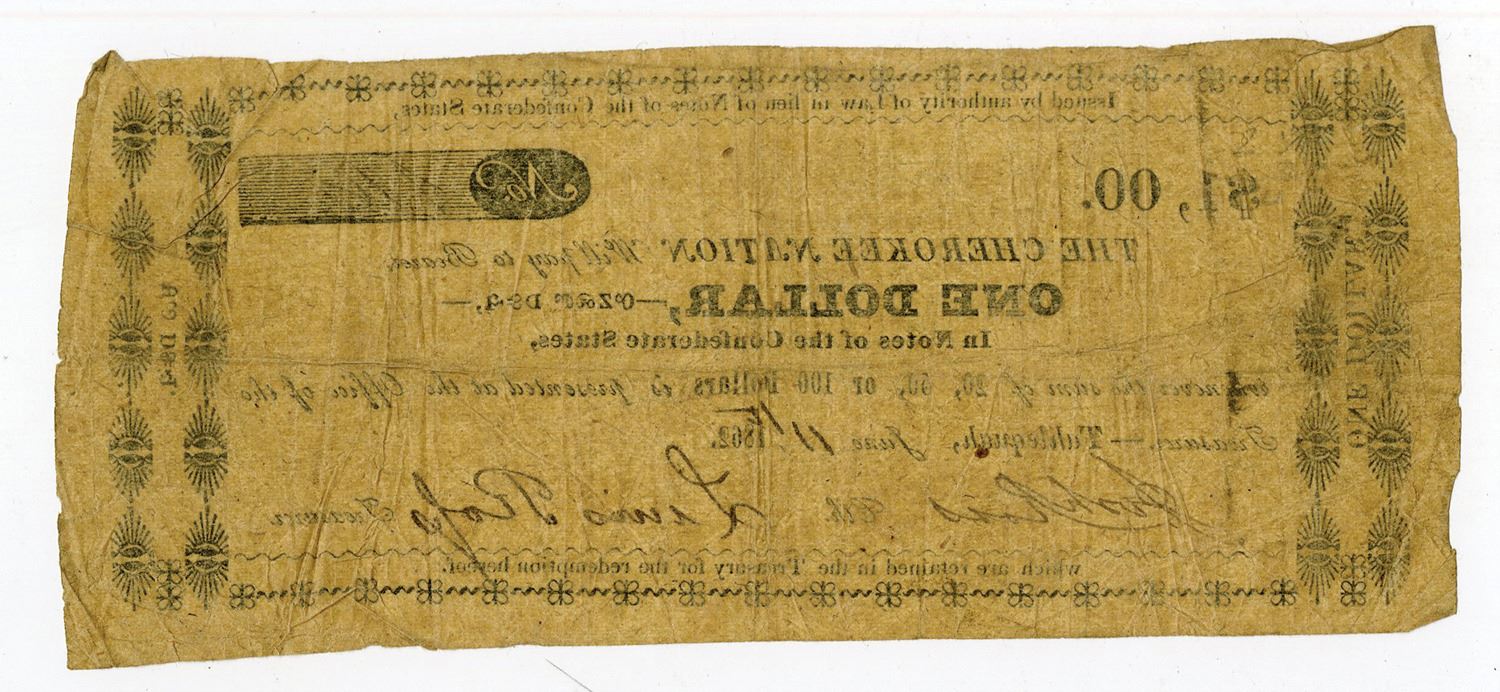 Issued by authority of Law in lieu of Notes of the Confederate States,
$1,00.
No.
THE CHEROKEE NATION Will pay to Bearer,
ONE DOLLAR,
In Notes of the Confederate States,
whenever the sum of 20, 50, or 100 Dollars is presented at the Office of the
Treasurer.—Tahlequah, June 11th 1862.
Clk. Lewis Ross Treasurer
which are retained in the Treasury for the redemption herof.
ONE DOLLAR